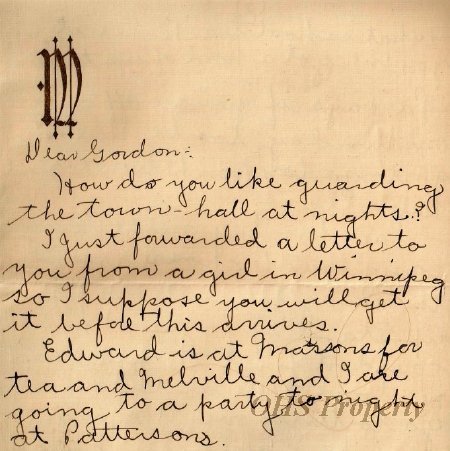 M
Dear Gordon:
How do you like guarding
the town-hall at nights.?
I just forwarded a letter to
you from a girl in Winnipeg
so I suppose you will get
it befoe this arrives.
Edward is at Massons for
tea and Melville and I are
going to a party to night
OHS Property
at Pattersons.